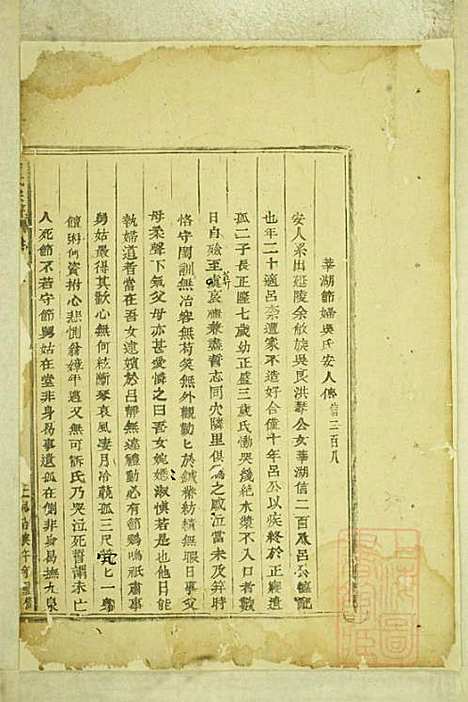 華湖節婦吳氏安人傳 信二百八
安人系出延陵余敝族吳長洪琴公女華湖信二百八呂公
也年二十適呂柰遭家不造好合僅十年呂公以疾終於正寢遺
孤二子長正隆七歲幼正盛三歲氏慟哭幾絕水漿不入口者數
日自殮至葬哀禮兼盡誓志同穴隣里俱為之感泣當未及笄時
恪守閨訓無冶容無苟笑無外觀勤匕於鍼黹紡績無暇日事父
母柔聲下氣父母亦甚愛憐之曰吾女婉嫕淑慎若是也他日能
執婦道者當在吾女迨嬪於呂幫無違禮動必有節雞鳴祇肅事
舅姑最得其歡心無何絃斷琴哀風凄月冷藐孤三尺煢匕一身
體粥何資拊心悲慟翁嫜年邁又無可訴氏乃哭泣死誓謂未亡
人死節不若守節舅姑在堂非身易事遺孤在側非身易撫九泉